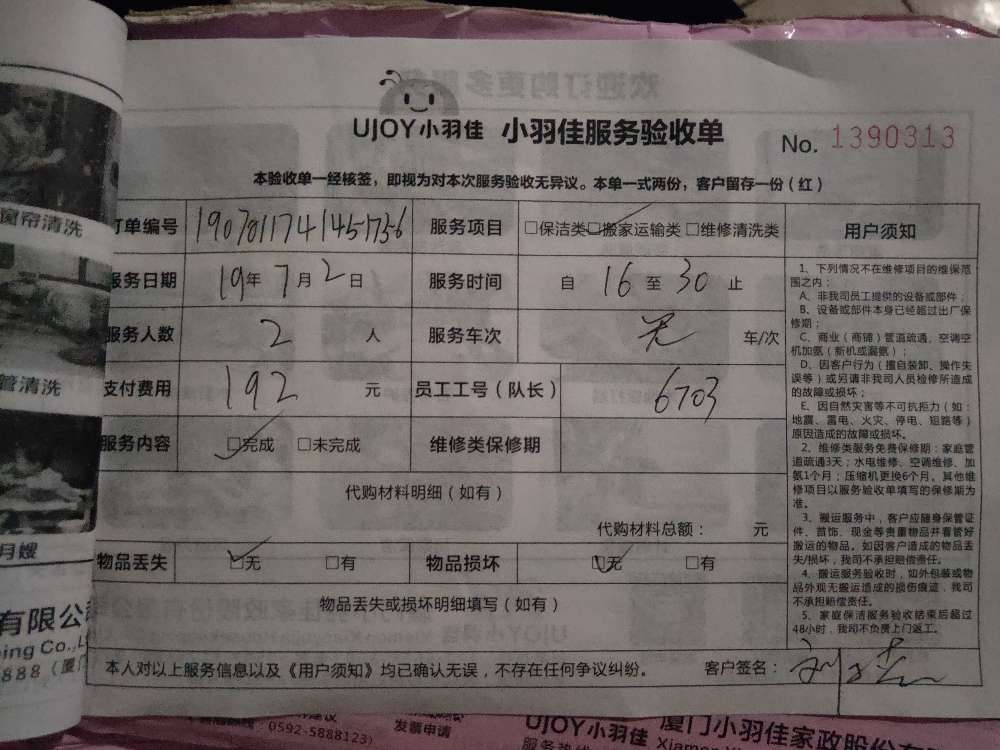 UJOY小羽佳 小羽佳服务验收单 No. 1390313
本验收单一经核签，即视为对本次服务验收无异议。本单一式两份，客户留存一份（红）
订单编号 服务项目 □保洁类 □搬家运输类 □维修清洗类
服务日期 19年 7月 2日 服务时间 自 16 至 30 止
服务人数 2 人 服务车次 无 车/次
支付费用 192 元 员工工号（队长） 6703
服务内容 □完成 □未完成 维修类保修期
代购材料明细（如有）
代购材料总额： 元
物品丢失 □无 □有 物品损坏 □无 □有
物品丢失或损坏明细填写（如有）
本人对以上服务信息以及《用户须知》均已确认无误，不存在任何争议纠纷。 客户签名：
用户须知
1、下列情况不在维修项目的维保范
围之内：
A、非我司员工提供的设备或部件；
B、设备或部件本身已经超过出厂保
修期；
C、商业（商铺）管道疏通、空调空
机加氨（新机或漏氨）；
D、因客户行为（擅自装卸、操作失
误等）或另请非我司人员检修所造成
的故障或损坏；
E、因自然灾害等不可抗拒力（如：
地震、雷电、火灾、停电、短路等）
原因造成的故障或损坏。
2、维修类服务免费保修期：家庭管
道疏通3天；水电维修、空调维修、加
氨1个月；压缩机更换6个月。其他维
修项目以服务验收单填写的保修期为
准。
3、搬运服务中，客户应随身保管证
件、首饰、现金等贵重物品并看管好
搬运的物品。如因客户造成的物品丢
失/损坏，我司不承担赔偿责任。
4、搬运服务验收时，如外包装或物
品外观无搬运造成的损伤痕迹，我司
不承担赔偿责任。
5、家庭保洁服务验收结束后超过
48小时，我司不负责上门返工。
窗帘清洗
管清洗
月嫂
有限公
ing Co.,L
888（厦
0592-5888123）
发票申请
UJOY小羽佳
服务热线
厦门小羽佳家政股份